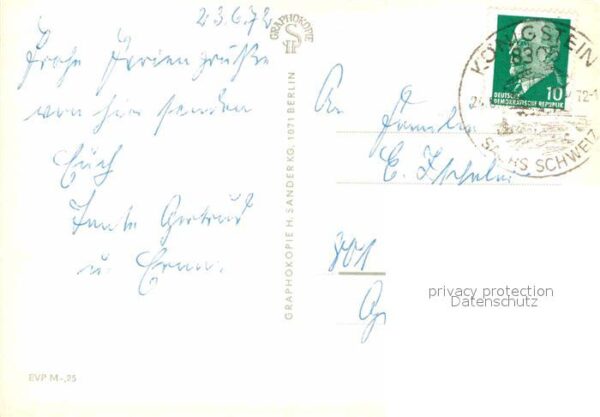 23.6.72
Frohe Feriengrüße
von hier senden
Euch
Tante Gertrud
u. Erna.
EVP M-,25
GRAPHOKOPIE
GRAPHOKOPIE H. SANDER KG, 1071 BERLIN
10
DEUTSCHE
DEMOKRATISCHE REPUBLIK
KÖNIGSTEIN
8305
72-1
SÄCHS SCHWEIZ
An
Familie
E.
801
privacy protection
Datenschutz